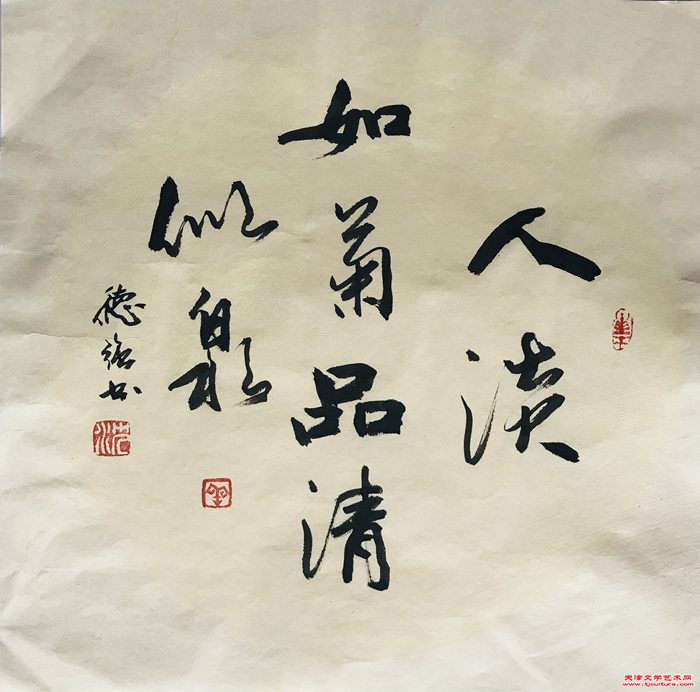 人淡
如菊品清
似泉
德强书
天津文学艺术网
www.tjculture.com